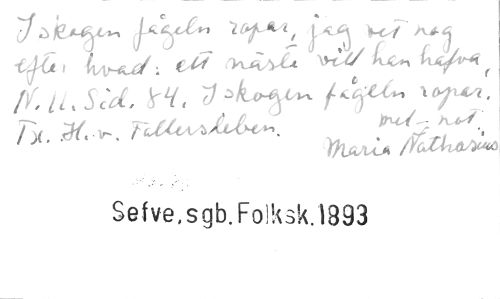 I skogen fågeln ropar, jag vet nog
efter hvad: ett näste vill han hafva,
N. U. Sid. 84. I skogen fågeln ropar.
Tx. H. v. Fallersleben. met. not.
Maria Nathasius
Sefve, sgb. Folksk. 1893